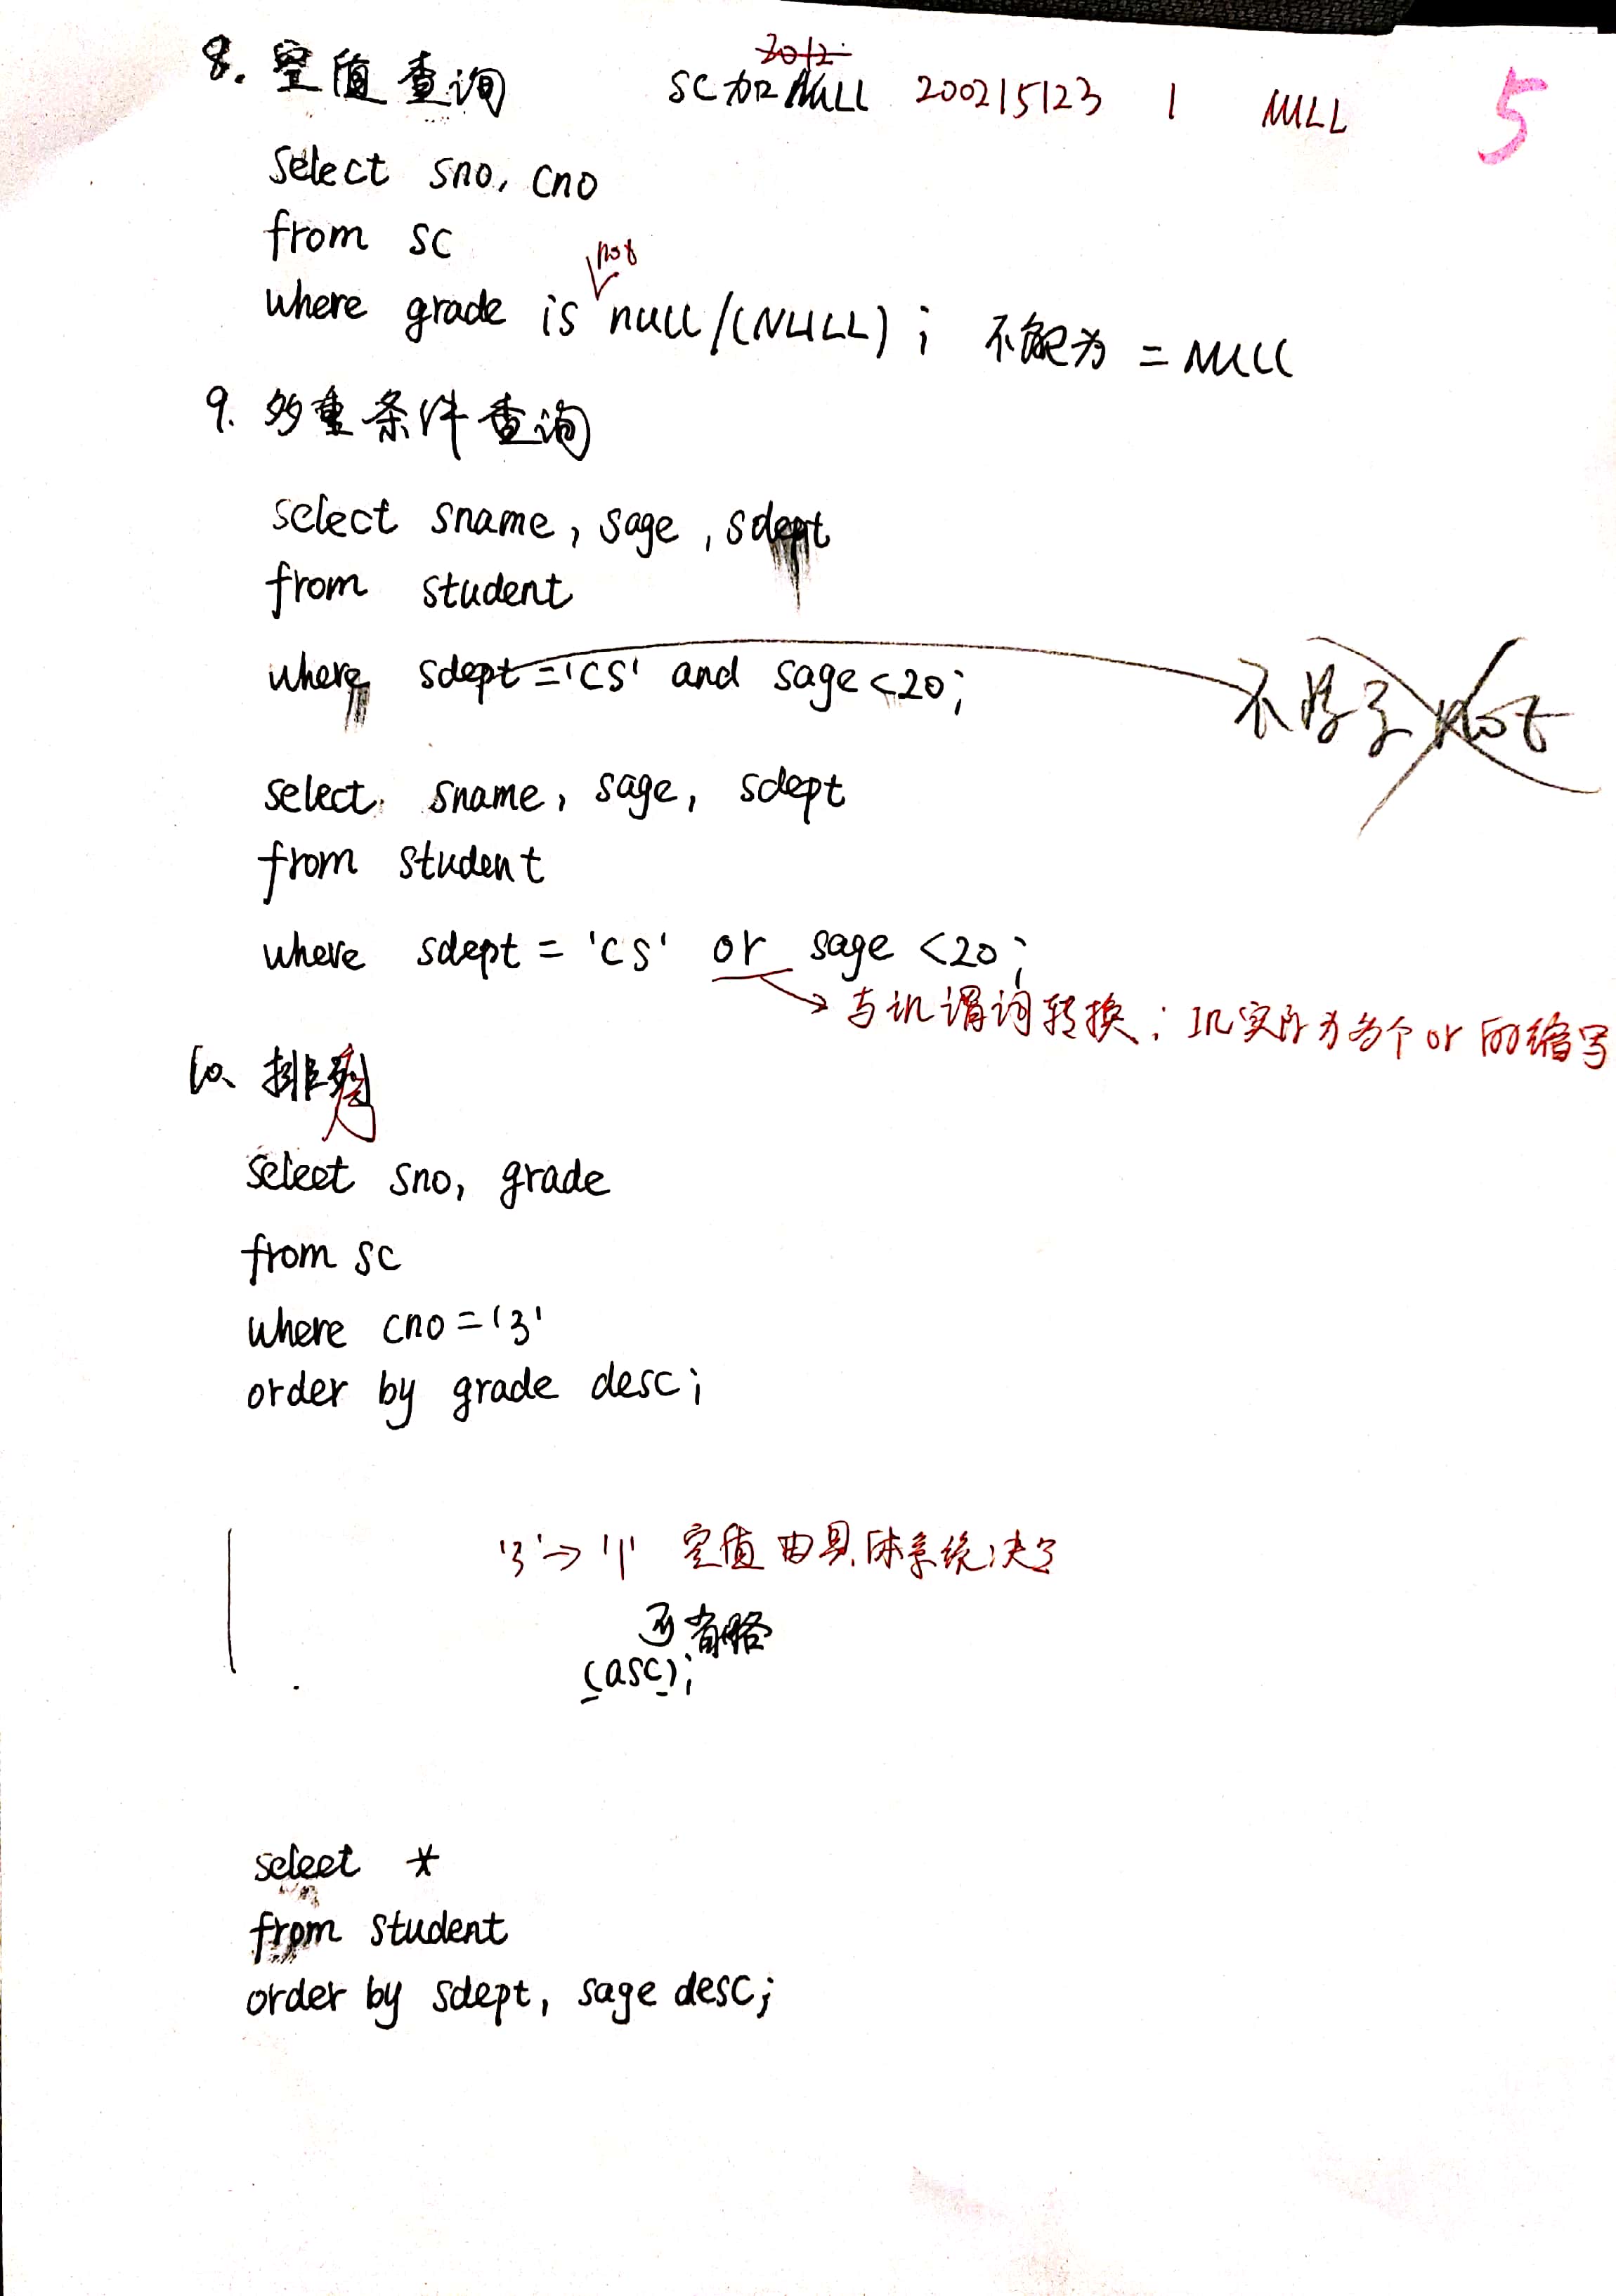 8. 空值查询 SC加NULL 200215123 1 NULL 5
select sno, cno
from sc
not
where grade is null/(NULL); 不能为 = NULL
9. 多重条件查询
select sname, sage, sdept
from student
where sdept='CS' and sage<20; 不等于 not
select sname, sage, sdept
from student
where sdept = 'CS' or sage <20;
→ 与in谓词转换; in实际为多个or的缩写
10、排序
select sno, grade
from sc
where cno='3'
order by grade desc;
'3'→'1' 空值由具体系统决定
可省略
(asc);
select *
from student
order by sdept, sage desc;